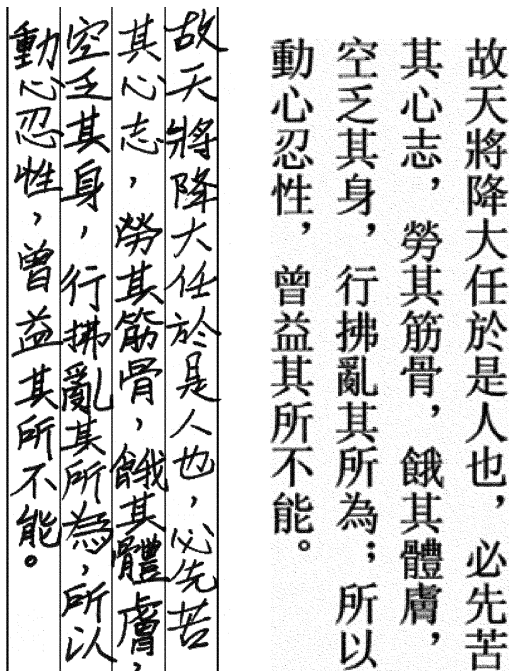 故天將降大任於是人也，必先苦
其心志，勞其筋骨，餓其體膚，
空乏其身，行拂亂其所為；所以
動心忍性，曾益其所不能。
故天將降大任於是人也，必先苦
其心志，勞其筋骨，餓其體膚，
空乏其身，行拂亂其所為，所以
動心忍性，曾益其所不能。